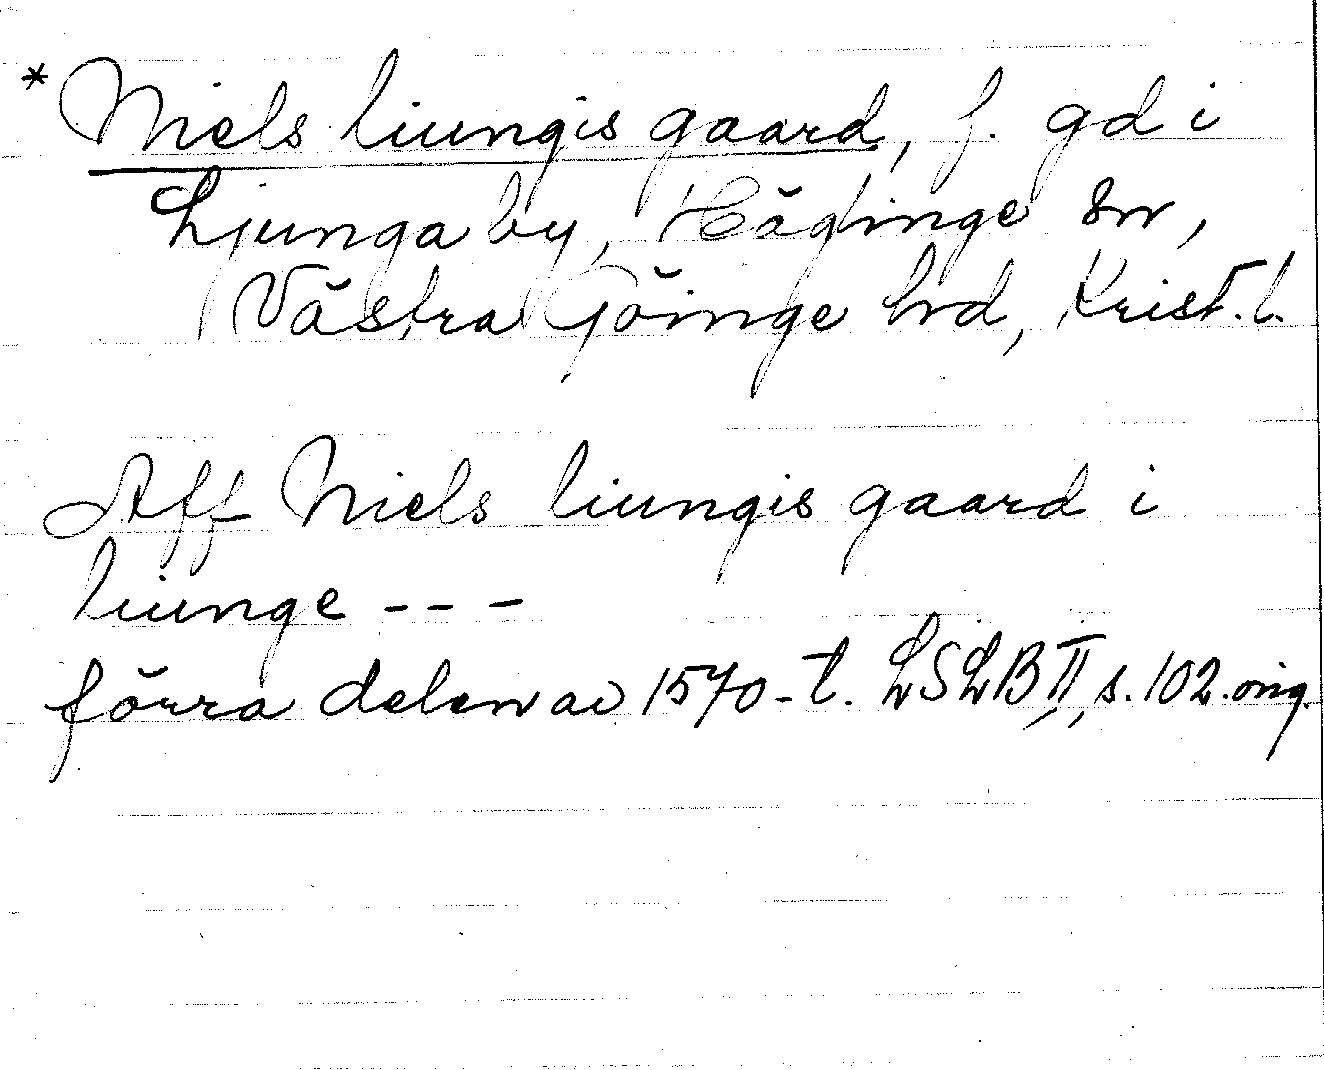 * Niels liungis gaard, f. gd i
Ljunga by, Häglinge sn,
Västra Göinge hd, Krist. l.
Aff Niels liungis gaard i
liunge - - -
förra delen av 1570-t. LSLB, II, s. 102. orig.